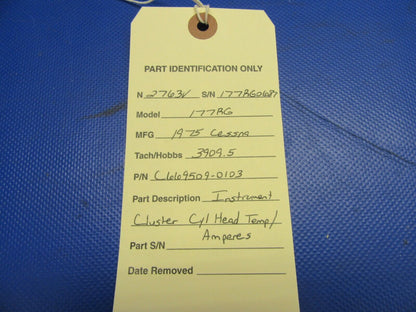 PART IDENTIFICATION ONLY
N 2763V S/N 177RG0687
Model 177RG
MFG 1975 Cessna
Tach/Hobbs 3909.5
P/N C669509-0103
Part Description Instrument
Cluster Cyl Head Temp/
Amperes
Part S/N
Date Removed